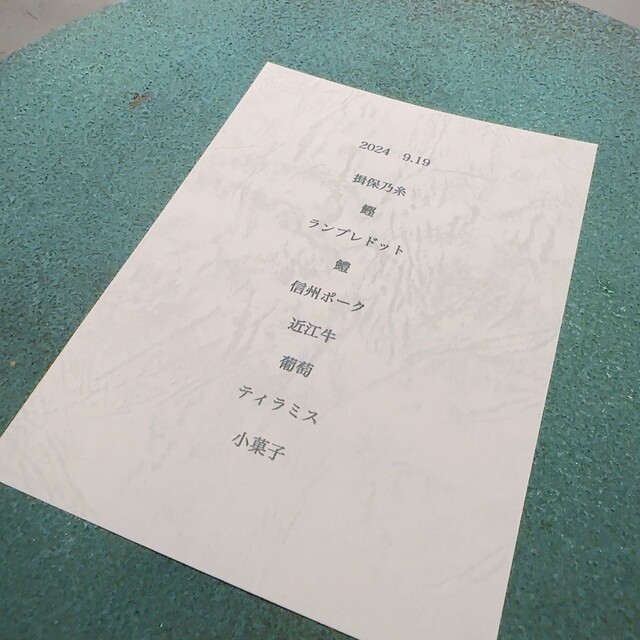 2024 9.19
揖保乃糸
鰹
ランプレドット
鱧
信州ポーク
近江牛
葡萄
ティラミス
小菓子